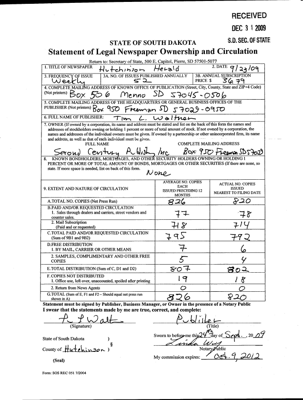 RECEIVED
DEC 31 2009
S.D. SEC. OF STATE
STATE OF SOUTH DAKOTA
Statement of Legal Newspaper Ownership and Circulation
Return to: Secretary of State, 500 E. Capitol, Pierre, SD 57501-5077
1. TITLE OF NEWSPAPER Hutchinson Herald
2. DATE 9/23/09
3. FREQUENCY OF ISSUE Weekly
3A. NO. OF ISSUES PUBLISHED ANNUALLY 52
3B. ANNUAL SUBSCRIPTION PRICE $
4. COMPLETE MAILING ADDRESS OF KNOWN OFFICE OF PUBLICATION (Street, City, County, State and ZIP+4 Code)
(Not printer) Box 506 Menno SD 57045-0506
5. COMPLETE MAILING ADDRESS OF THE HEADQUARTERS OR GENERAL BUSINESS OFFICES OF THE
PUBLISHER (Not printer) Box 950 Freeman SD 57029-0950
6. FULL NAME OF PUBLISHER: Tim L. Waltner
7. OWNER (If owned by a corporation, its name and address must be stated and
FULL NAME
COMPLETE MAILING ADDRESS
Second Century Publishing Inc Box 950 Freeman SD 57029
8. KNOWN BONDHOLDERS, MORTGAGES, AND OTHER SECURITY HOLDERS OWNING OR HOLDING 1
PERCENT OR MORE OF TOTAL AMOUNT OF BONDS, MORTGAGES OR OTHER SECURITIES (If there are none, so
state. If more space is needed, list on back of this form.)
None
9. EXTENT AND NATURE OF CIRCULATION
AVERAGE NO. COPIES EACH ISSUED PRECEDING 12 MONTHS
ACTUAL NO. COPIES ISSUED NEAREST TO FILING DATE
A. TOTAL NO. COPIES (Net Press Run) 826 820
B. PAID AND/OR REQUESTED CIRCULATION
1. Sales through dealers and carriers, street vendors and counter sales. 77 78
2. Mail Subscription (Paid and or requested) 718 714
C. TOTAL PAID AND/OR REQUESTED CIRCULATION (Sum of 9B1 and 9B2) 795 792
D. FREE DISTRIBUTION
1. BY MAIL, CARRIER OR OTHER MEANS 7 6
2. SAMPLES, COMPLIMENTARY AND OTHER FREE COPIES 5 4
E. TOTAL DISTRIBUTION (Sum of C, D1 and D2) 807 802
F. COPIES NOT DISTRIBUTED
1. Office use, left over, unaccounted, spoiled after printing 19 18
2. Return from News Agents 0 0
G. TOTAL (Sum of E, F1 and F2 - Should equal net press run shown in A) 826 820
Statement must be signed by Publisher, Business Manager, or Owner in the presence of a Notary Public
I swear that the statements made by me are true, correct, and complete:
Publisher
(Signature) (Title)
State of South Dakota )
County of Hutchinson )
Notary Public
(Seal)
My commission expires: Oct 9, 2012